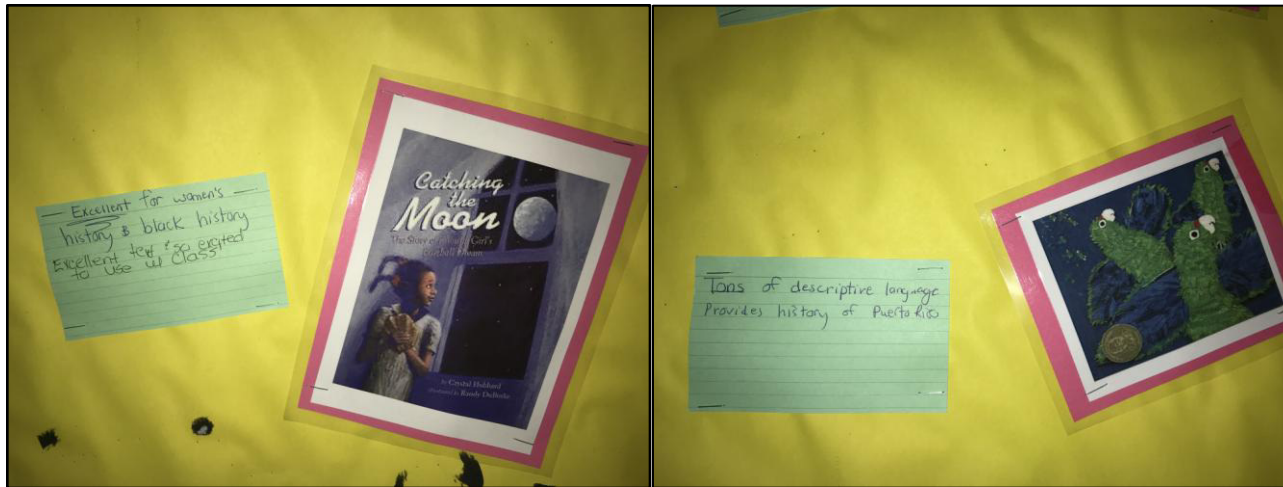 Excellent for women's
history & black history
Excellent text & so excited
to use w/ class
Catching
the
Moon
The Story of a Young Girl's
Baseball Dream
by Crystal Hubbard
illustrated by Randy DuBurke
Tons of descriptive language
Provides history of Puerto Rico